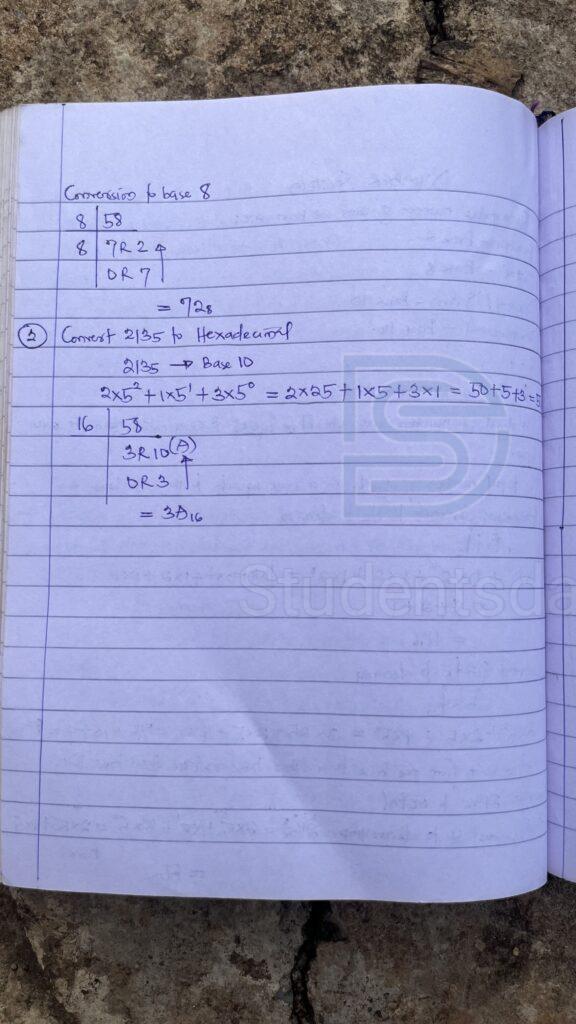 Conversion to base 8
8 | 58
8 | 7 R 2
0 R 7
= 72₈
② Convert 213₅ to Hexadecimal
213₅ → Base 10
2×5² + 1×5¹ + 3×5⁰ = 2×25 + 1×5 + 3×1 = 50+5+3 = 5
16 | 58
3 R 10 (A)
0 R 3
= 3A₁₆
Studentsda